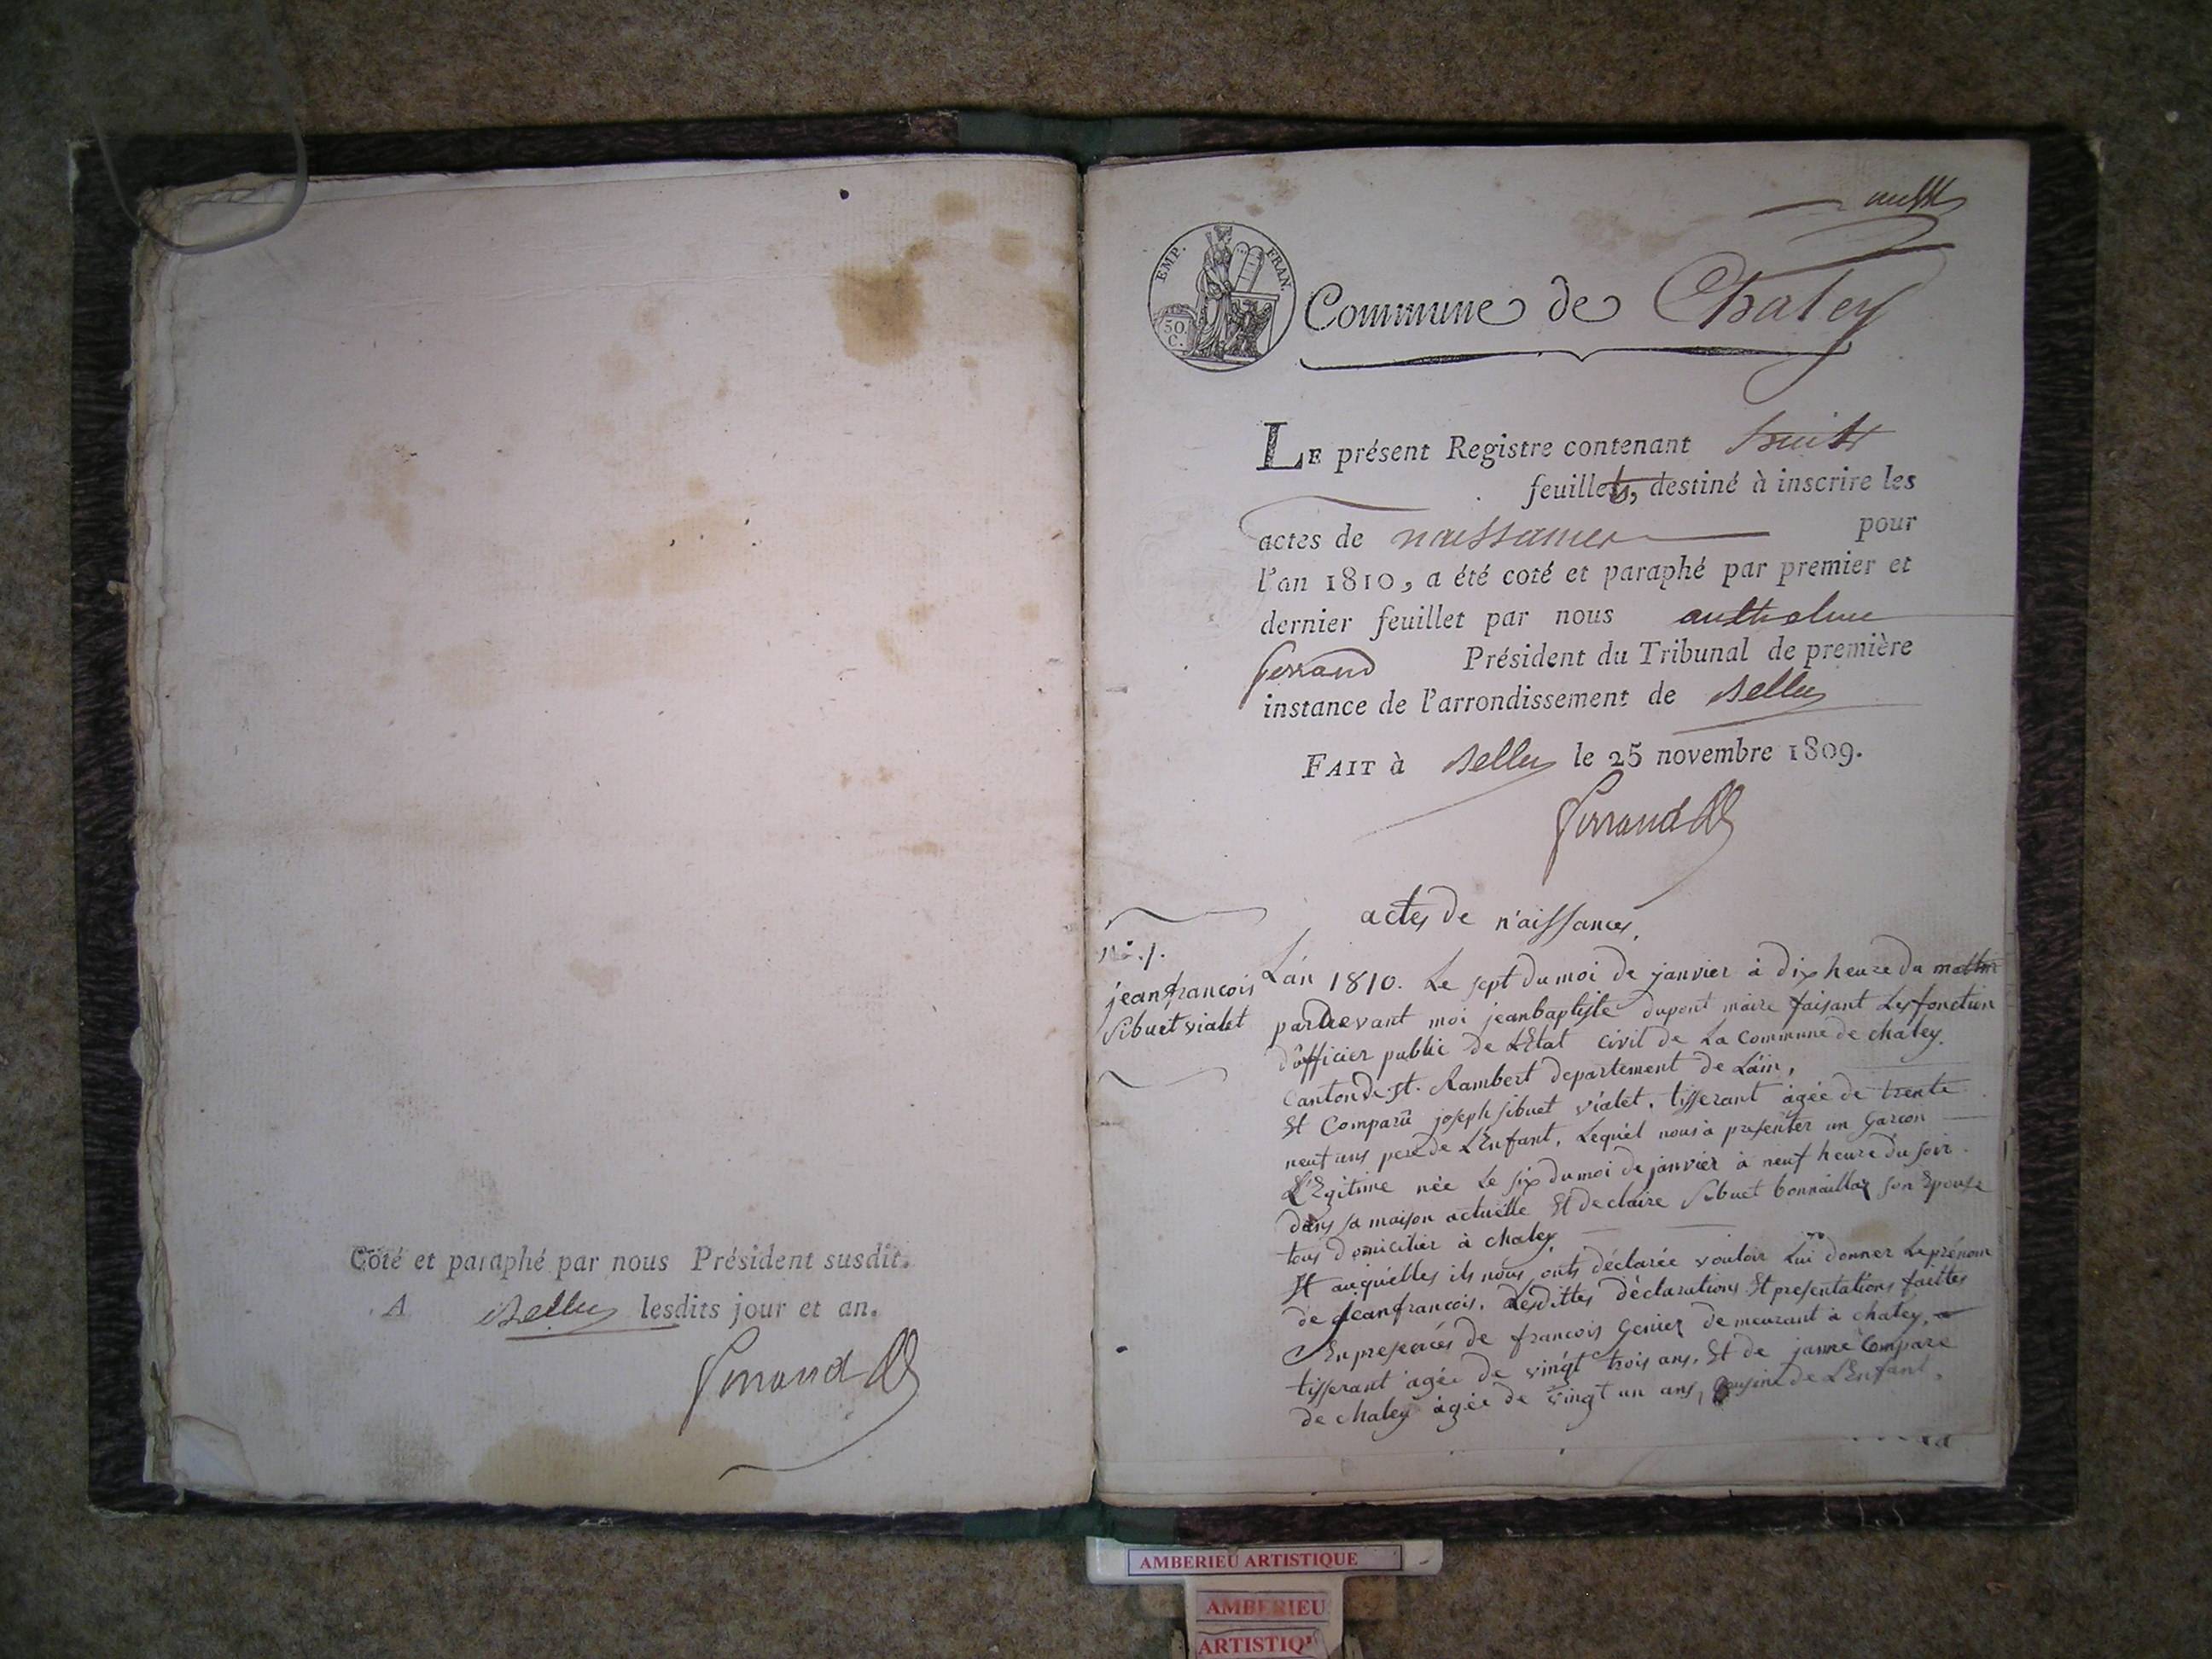 Coté et paraphé par nous Président susdit.
A Belley lesdits jour et an.
Ferrand
EMP. FRAN.
50. C.
Commune de Chaley
LE présent Registre contenant huit
feuillets, destiné à inscrire les
actes de naissances pour
l'an 1810, a été coté et paraphé par premier et
dernier feuillet par nous anthelme
ferrand Président du Tribunal de première
instance de l'arrondissement de Belley
FAIT à Belley le 25 novembre 1809.
Ferrand
actes de n'aissances,
No. 1.
jean francois
Sibuet vialet
L'an 1810. Le sept du moi de janvier à dix heure du matin
pardevant moi jean baptiste dupont maire faisant Les fonction
d'officier public de L'Etat civil de La Commune de chaley.
Canton de st. Rambert departement de L'ain,
Et Comparû joseph sibuet vialet, tisserant agée de trente
neuf ans pere de L'Enfant, Lequel nous à presenter un Garcon
L'Egitime née Le six du moi de janvier à neuf heure du soir
dans sa maison actuelle Et de claire Sibuet bonnaillaz son Epouse
tous domicilier à chaley,
Et auquielles ils nous onts déclarée vouloir Lui donner Le prénom
de jean francois. Lesdittes déclarations Et presentations faittes
En presences de francois Genier demeurant à chaley,
tisserant agée de vingt trois ans, Et de janne Compare
de chaley agée de vingt un ans, Cousine de L'Enfant,
AMBERIEU ARTISTIQUE
AMBERIEU
ARTISTIQ